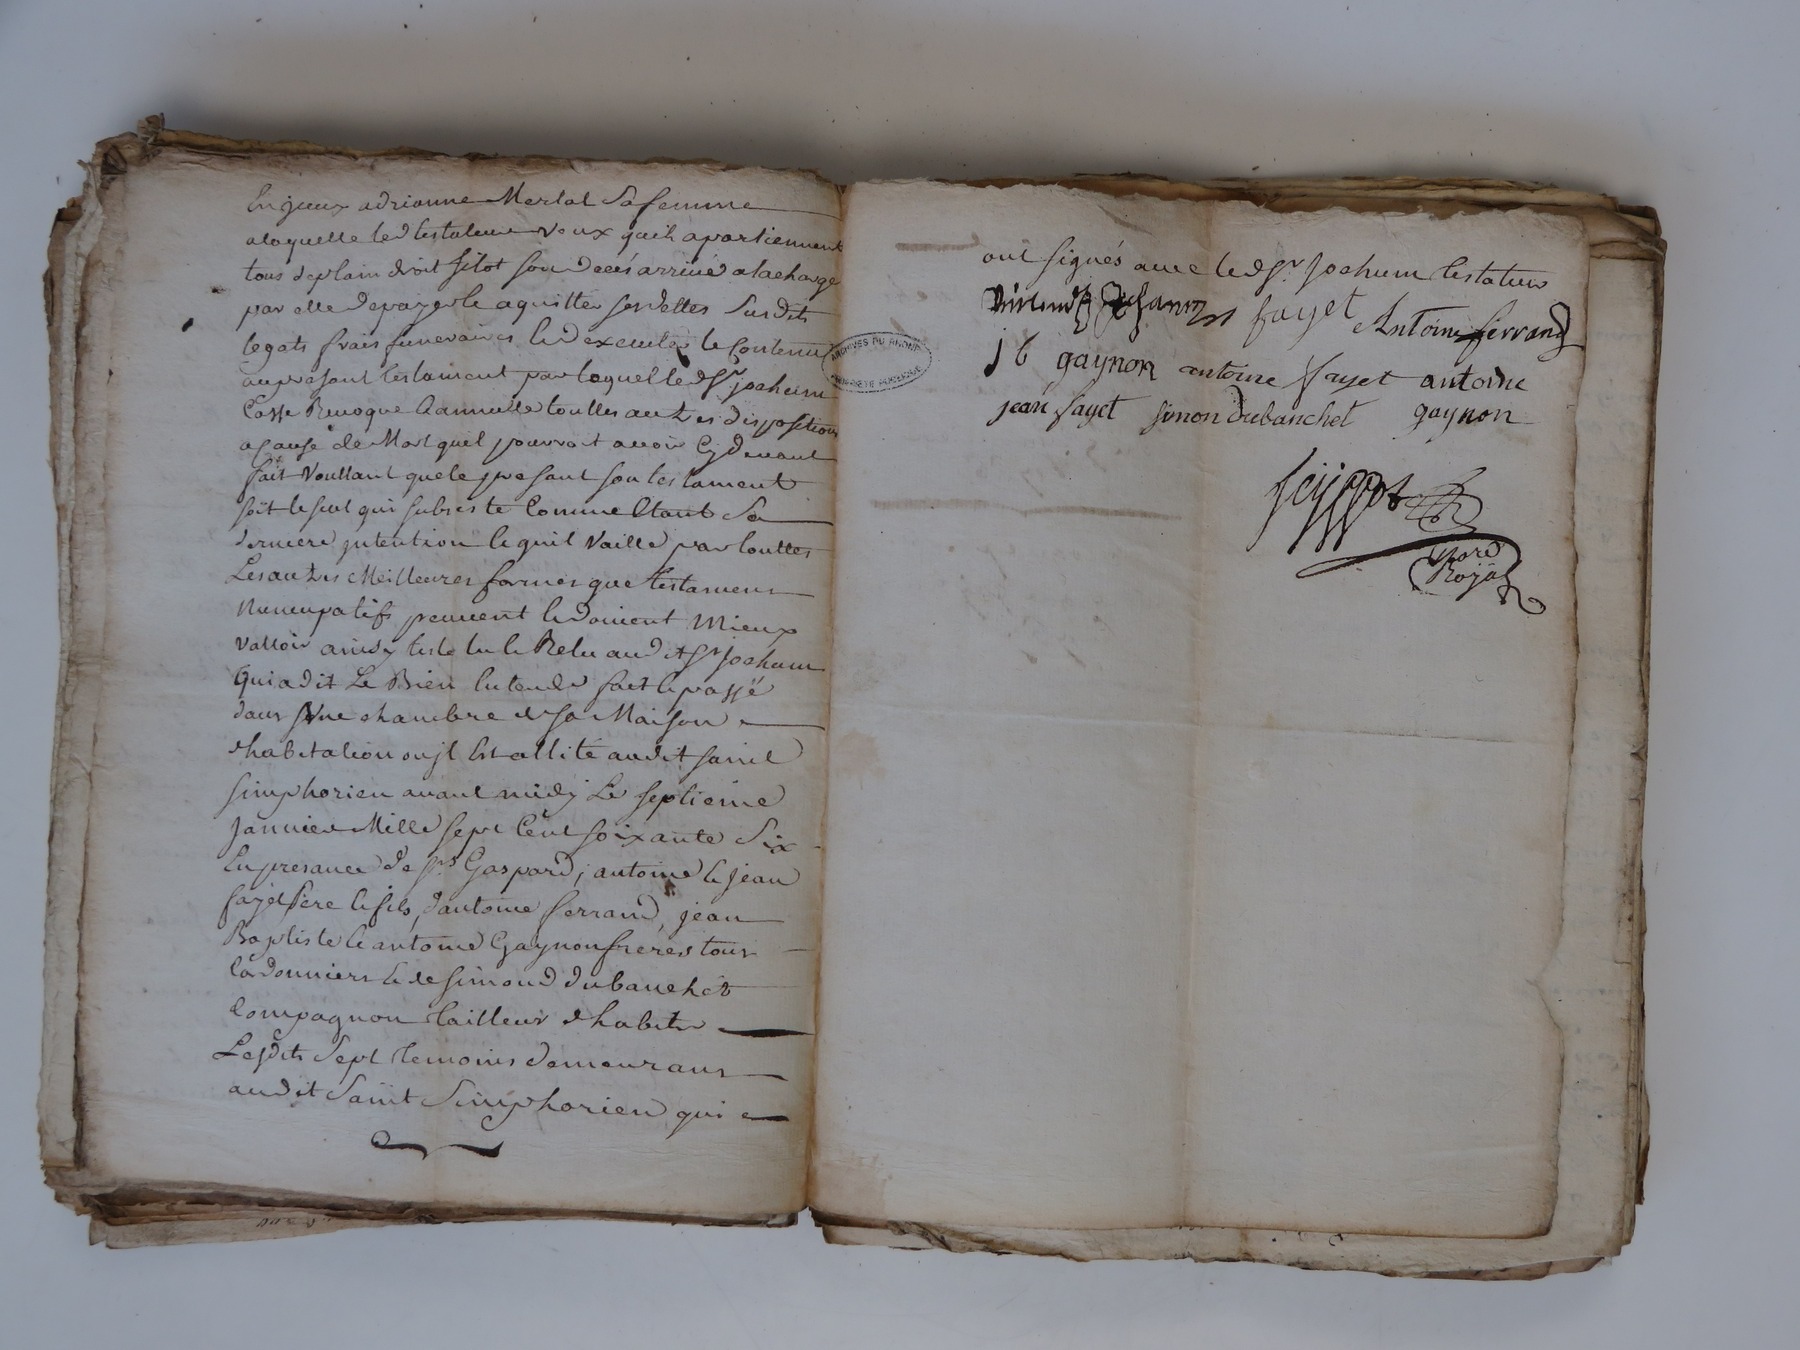 En jceux adrianne Merlat Sa femme
a laquelle led testateur veux quils apartiennent
tous de plain droit sitot son decés arrivé a la charge
par elle de payer & aquitter ses dettes Susdits
legats frais funeraires & dexecuter le Contenu
au present testament par lequel led Sr jochum
Casse Revoque & annulle touttes autres dispositions
a cause de Mort quil pouvroit avoir Cy devant
fait voullant que le present son testament
soit le seul qui subsiste Comme Etant Sa
derniere jntention & quil vaille par touttes
Les autres Meilleures formes que testament
Nuncupatifs peuvent & doivent Mieux
valloir ainsy testé lu & Relu audit Sr jochum
Qui a dit Le Bien Entendre fait & passé
dans Une chambre de sa Maison
dhabitation ou jl Est allité audit saint
simphorien avant midy Le septieme
Janvier Mille sept Cent soixante Six
En presance de Srs Gaspard, antoine & jean
fayet Pere & fils, dantoine ferrand, jean
Baptiste & antoine Gaynon freres tous
Cordonniers & de simond dubanchet
Compagnon tailleur dhabits
Lesdits Sept temoins demeurans
audit Saint Simphorien qui
ont signés avec led Sr jochum testateur
fayet Antoine ferrand
j b gaynon antoine fayet antoine
jean fayet simon dubanchet gaynon
Nore
Royal
ARCHIVES DU RHONE
PROPRIETE PUBLIQUE